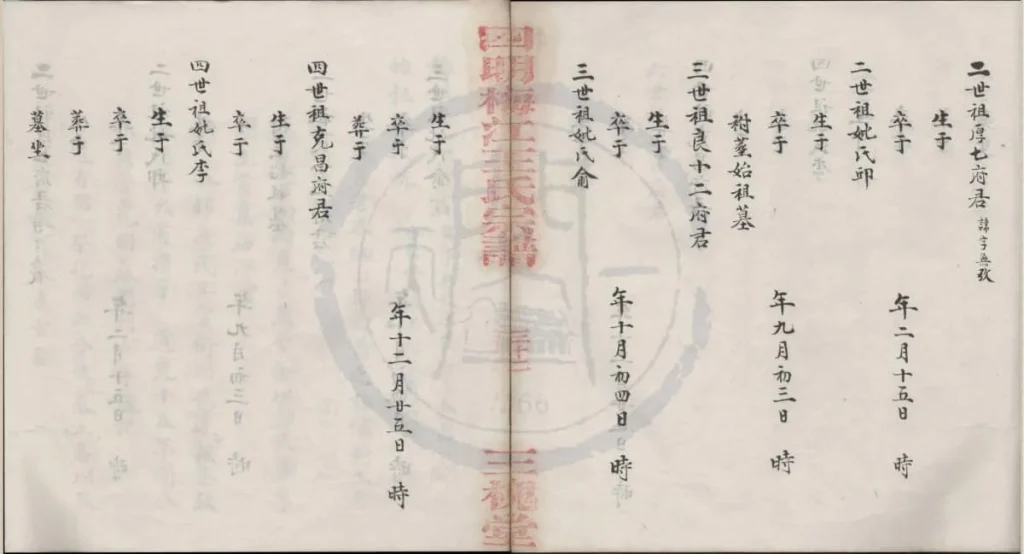 二世祖厚七府君 諱字無攷
生于
卒于 年二月十五日 時
二世祖妣氏邱
生于
卒于 年九月初三日 時
祔葬始祖墓
三世祖良十二府君
生于
卒于 年十月初四日 時
三世祖妣氏俞
四明梅江王氏宗譜
三槐堂
生于
卒于 年十二月廿五日 時
葬于
四世祖克昌府君
生于
卒于
四世祖妣氏李
生于
卒于
葬于
墓坐